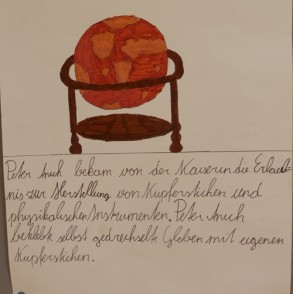 Peter Anich bekam von der Kaiserin die Erlaub-
nis zur Herstellung von Kupferstichen und
physikalischen Instrumenten. Peter Anich
beklebte selbst gedrechselte Globen mit eigenen
Kupferstichen.